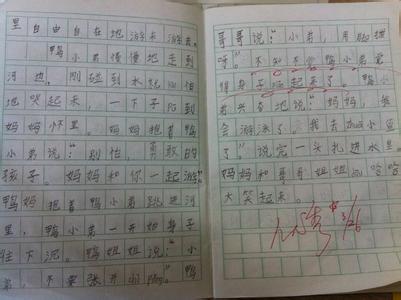 里自由自在地游来游去。
鸭小弟慢慢地走到
河边，刚碰到水就怕
地哭起来，一下子扑到
妈妈怀里。妈妈抱着鸭
小弟说：“别怕，勇敢的
孩子。妈妈和你一起游”
鸭妈抱着鸭小弟跳进河
里，鸭小弟一开始身子
往下沉。鸭姐姐说：“小
弟，不要张开
哥哥说：“小弟，用脚
呀。”不知不觉鸭小弟
身子起来了。鸭小
弟兴奋地说：“妈妈，我
会游泳了。我去
了。”说完一头扎进水里。
妈妈和哥哥姐姐们哈哈
大笑起来。